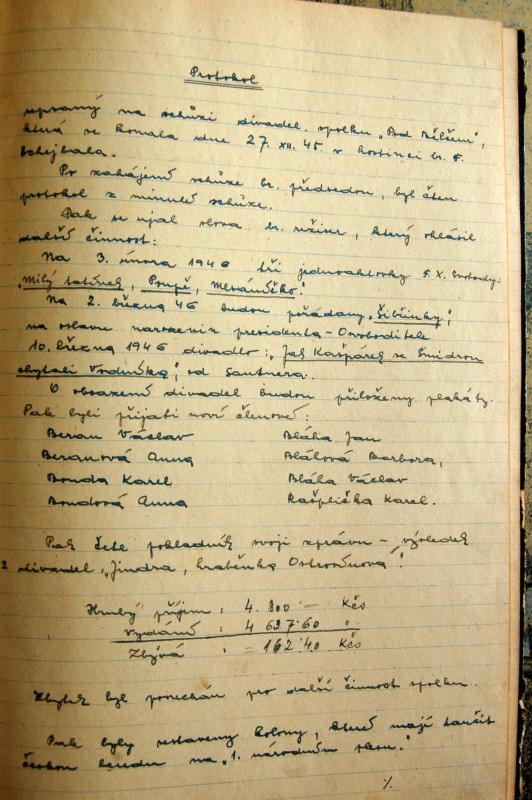 Protokol
sepsaný na schůzi divadel. spolku „Pod Mělčení",
která se konala dne 27. XII. 45. v hostinci br. F.
Schejbala.
Po zahájení schůze br. předsedou, byl čten
protokol z minulé schůze.
Pak se ujal slova br. režiser, který ohlásil
další činnost:
Na 3. února 1946 tři jednoaktovky F. X. Svobody:
„Milý tatínek, Poupě, Meránéčko."
Na 2. března 46 budou pořádány „Šibřinky",
na oslavu narozenin presidenta-Osvoboditele
10. března 1946 divadlo: „Jak Kašpárek se Šmidrou
chytali Vodníka", od Santnera.
O obsazení divadel budou přiloženy plakáty.
Pak byli přijati noví členové:
Beran Václav Bláha Jan
Beranová Anna Bláhová Barbora,
Bouda Karel Bláha Václav
Boudová Anna Rašplička Karel.
Pak čte pokladník svoji zprávu - výsledek
z divadel, „Jindra, hraběnka Ostrovínova".
Hrubý příjem : 4.800 — Kčs
Vydání : 4 637·60 "
Zbývá : = 162·40 Kčs
Zbytek byl ponechán pro další činnost spolku.
Pak byly sestaveny kolony, které mají tančit
českou besedu na „1. národním plesu."
%